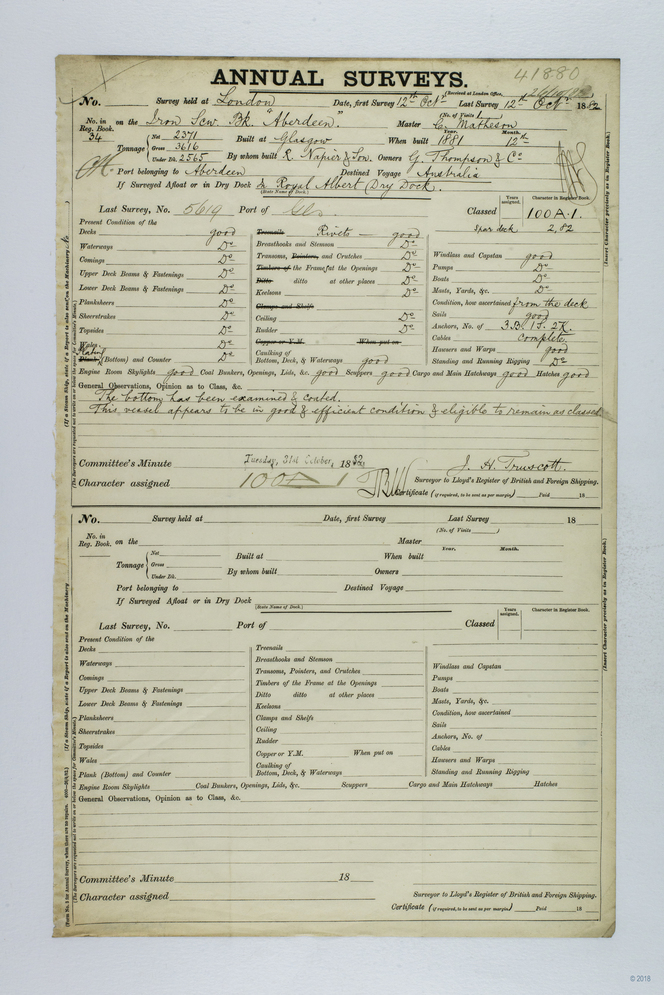 41880
ANNUAL SURVEYS.
(Received at London Office,
No. Survey held at London Date, first Survey 12th Octr Last Survey 12th Octr 1882
(No. of Visits )
No. in Reg. Book. 34 on the Iron Scw. Bk. "Aberdeen." Master C. Matheson
Tonnage Net 2371 Gross 3616 Under Dk. 2565 Built at Glasgow When built Year. 1881 Month. 12th
By whom built R. Napier & Son. Owners G. Thompson & Co
Port belonging to Aberdeen Destined Voyage Australia
If Surveyed Afloat or in Dry Dock & Royal Albert (Dry Dock).
(State Name of Dock.)
Last Survey, No. 5619 Port of Classed Years assigned. Character in Register Book. 100A.1.
Spar deck 2,82
Present Condition of the
Decks good Treenails Rivets — good
Waterways Do Breasthooks and Stemson Do Windlass and Capstan good
Comings Do Transoms, Pointers, and Crutches Do Pumps Do
Upper Deck Beams & Fastenings Do Timbers of the Frame at the Openings Do Boats Do
Lower Deck Beams & Fastenings Do Ditto ditto at other places Do Masts, Yards, &c. Do
Planksheers Do Keelsons Do Condition, how ascertained from the deck
Sheerstrakes Do Clamps and Shelfs Sails good
Topsides Do Ceiling Do Anchors, No. of 3.B. 1S. 2K.
Wales Do Rudder Do Cables Complete.
Plating Plank (Bottom) and Counter Do Copper or Y.M. When put on Hawsers and Warps good
Caulking of Bottom, Deck, & Waterways good Standing and Running Rigging Do
Engine Room Skylights good Coal Bunkers, Openings, Lids, &c. good Scuppers good Cargo and Main Hatchways good Hatches good
General Observations, Opinion as to Class, &c.
The bottom has been examined & coated.
This vessel appears to be in good & efficient condition & eligible to remain as classed.
Committee's Minute Tuesday, 31st October, 1882. J. H. Truscott.
Character assigned 100A1 Surveyor to Lloyd's Register of British and Foreign Shipping.
Certificate (if required, to be sent as per margin) Paid 18
No. Survey held at Date, first Survey Last Survey 18
(No. of Visits )
No. in Reg. Book. on the Master
Tonnage Net Gross Under Dk. Built at When built Year. Month.
By whom built Owners
Port belonging to Destined Voyage
If Surveyed Afloat or in Dry Dock
(State Name of Dock.)
Last Survey, No. Port of Classed Years assigned. Character in Register Book.
Present Condition of the
Decks Treenails
Waterways Breasthooks and Stemson Windlass and Capstan
Comings Transoms, Pointers, and Crutches Pumps
Upper Deck Beams & Fastenings Timbers of the Frame at the Openings Boats
Lower Deck Beams & Fastenings Ditto ditto at other places Masts, Yards, &c.
Planksheers Keelsons Condition, how ascertained
Sheerstrakes Clamps and Shelfs Sails
Topsides Ceiling Anchors, No. of
Wales Rudder Cables
Plank (Bottom) and Counter Copper or Y.M. When put on Hawsers and Warps
Caulking of Bottom, Deck, & Waterways Standing and Running Rigging
Engine Room Skylights Coal Bunkers, Openings, Lids, &c. Scuppers Cargo and Main Hatchways Hatches
General Observations, Opinion as to Class, &c.
Committee's Minute 18
Character assigned Surveyor to Lloyd's Register of British and Foreign Shipping.
Certificate (if required, to be sent as per margin) Paid 18
(Insert Character precisely as in Register Book.)
(Insert Character precisely as in Register Book.)
© 2018